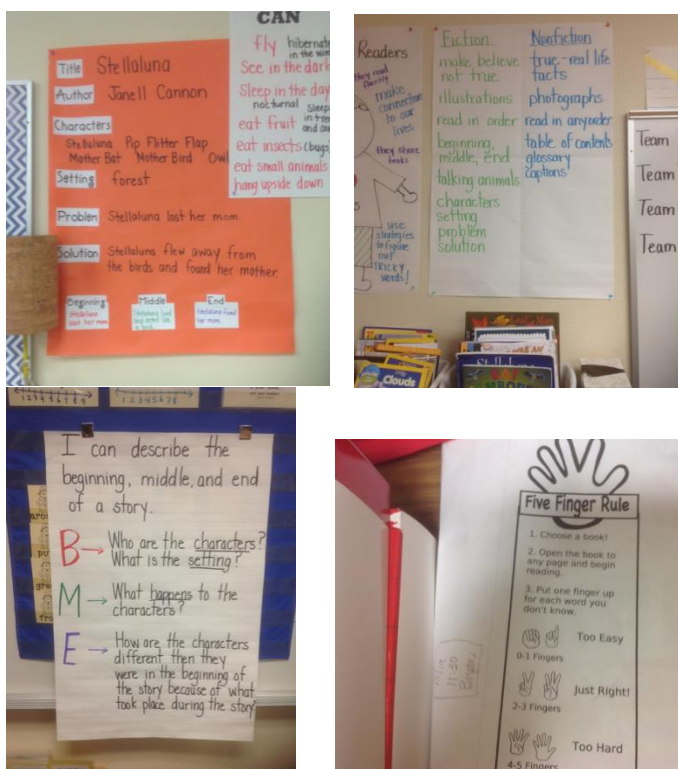 Title Stellaluna
Author Janell Cannon
Characters
Stellaluna Pip Flitter Flap
Mother Bat Mother Bird Owl
Setting forest
Problem Stellaluna lost her mom.
Solution Stellaluna flew away from
the birds and found her mother.
Beginning
Stellaluna
lost her mom.
Middle
Stellaluna
End
Stellaluna found
her mom.
CAN
fly hibernate
in the
See in the dark
Sleep in the day
nocturnal sleep
in
eat fruit
eat insects (bugs)
eat small animals
hang upside down
Readers
they read
fluently
make
connection
to our
lives.
they share
books
use
strategies
to figure
out
tricky
words!
Fiction
make believe
not true
illustrations
read in order
beginning,
middle, end
talking animals
characters
setting
problem
solution
Nonfiction
true-real life
facts
photographs
read in any order
table of contents
glossary
captions
Team
Team
Team
Team
Clouds
I can describe the
beginning, middle, and end
of a story.
B → Who are the characters?
What is the setting?
M → What happens to the
characters?
E → How are the characters
different then they
were in the beginning of
the story because of what
took place during the story
Five Finger Rule
1. Choose a book!
2. Open the book to
any page and begin
reading.
3. Put one finger up
for each word you
don't know.
Too Easy
0-1 Fingers
Just Right!
2-3 Fingers
Too Hard
4-5 Fingers
11:30